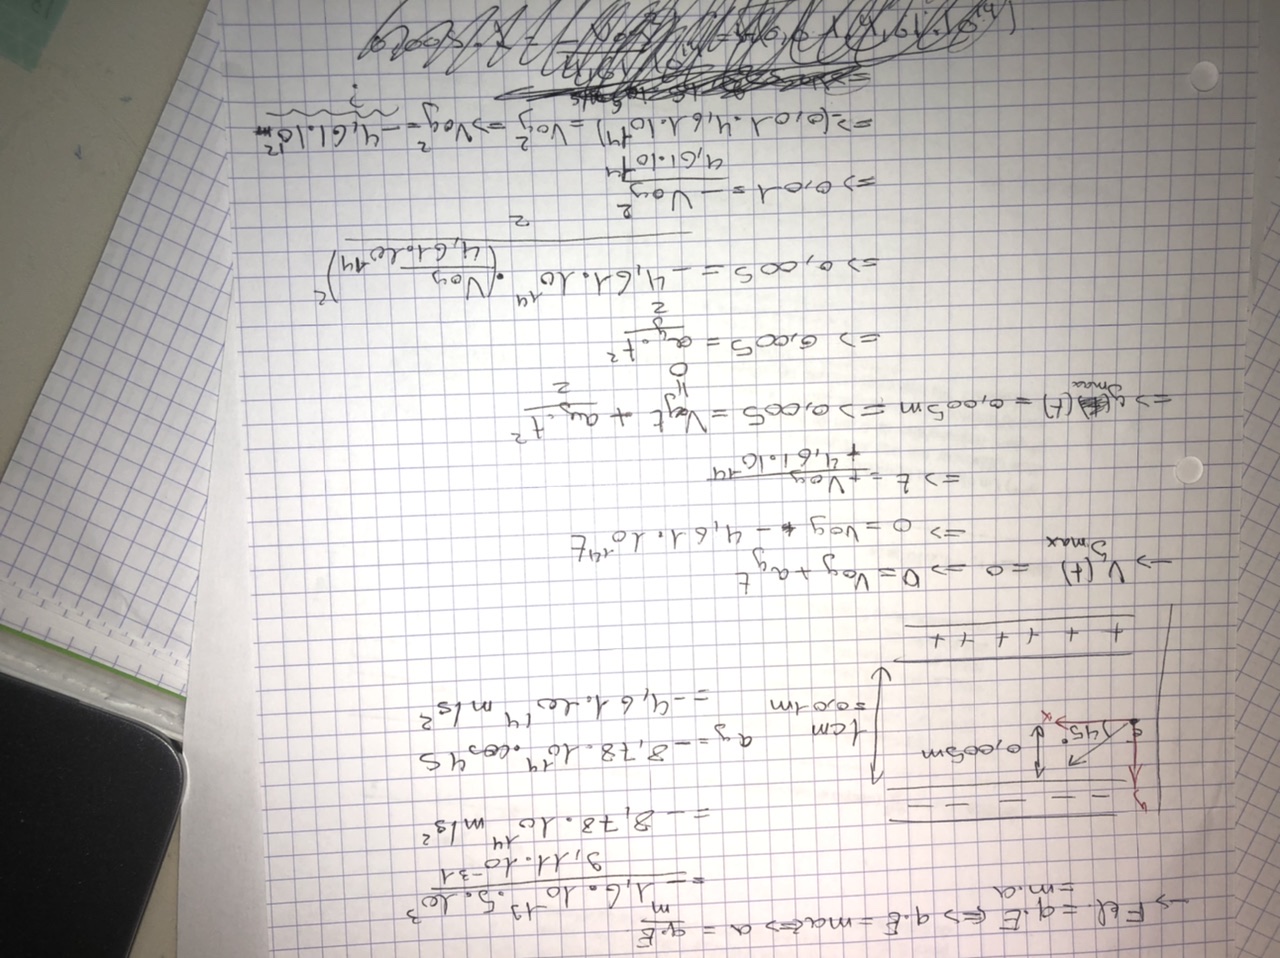 → Fel. = q.E <=> q.E = ma <=> a = q.E/m
= m.a
= - 1,6.10^-19.5.10^3 / 9,11.10^-31
= - 8,78.10^14 m/s²
ay = - 8,78.10^14.cos 45
= - 4,61.10^14 m/s²
y
- - - - -
e 45° x
0,005m
1cm = 0,01m
+ + + + + +
→ V(t) = 0 => 0 = Voy + ay t
Smax
=> 0 = Voy - 4,61.10^14 t
=> t = + Voy / + 4,61.10^14
=> y(t) = 0,005m => 0,005 = Voy t + ay.t²/2
Smax
= 0
=> 0,005 = ay.t²/2
=> 0,005 = - 4,61.10^14 . (Voy / 4,61.10^14)² / 2
=> 0,01 = - Voy² / 4,61.10^14
=> (0,01.4,61.10^14) = Voy² => Voy² = -4,61.10^12
?